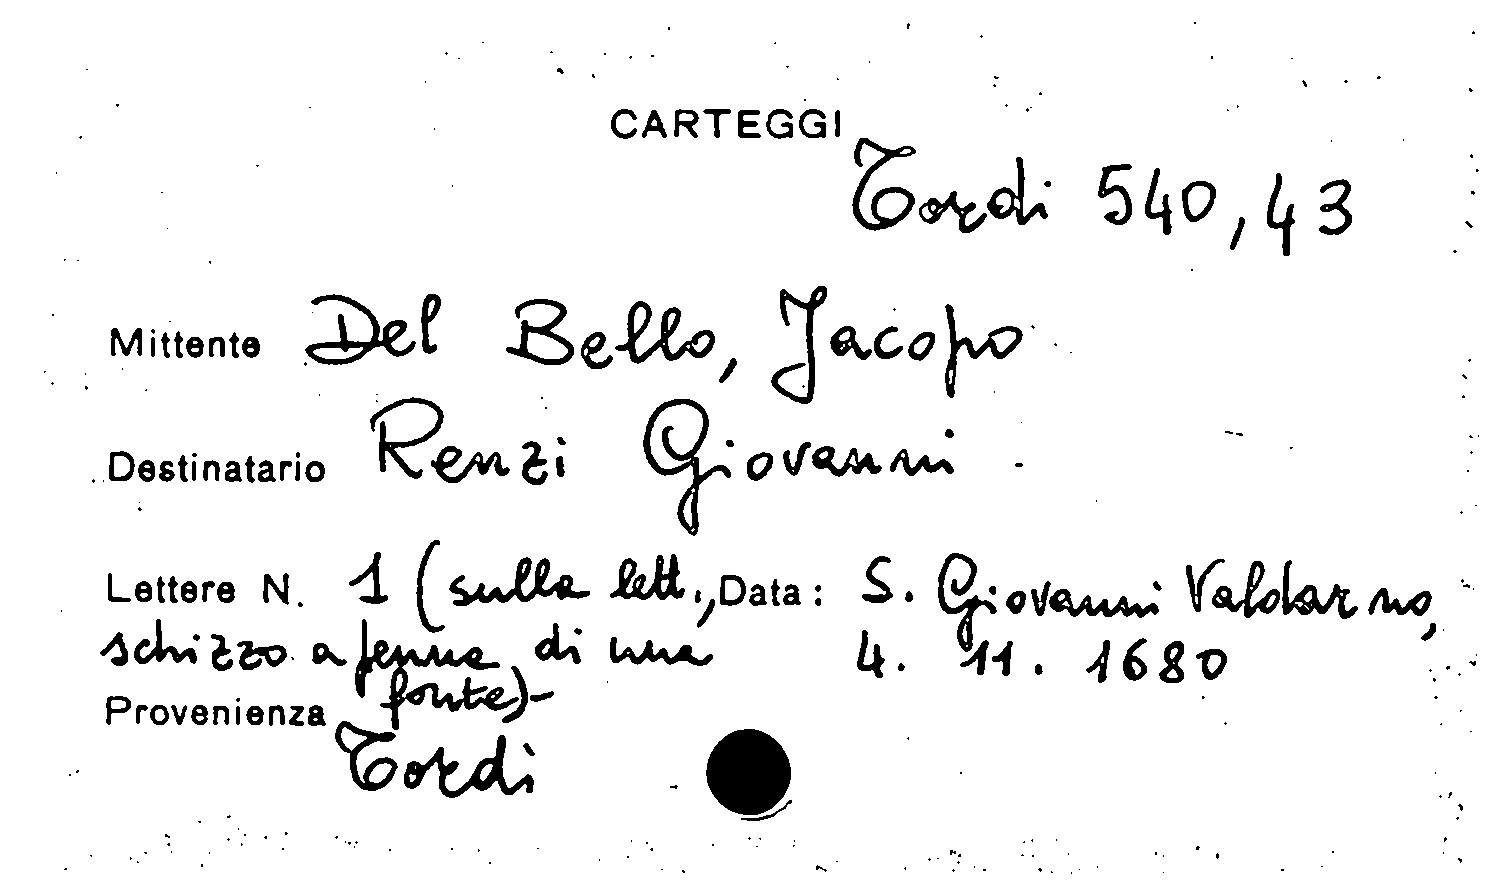 CARTEGGI
Tordi 540,43
Mittente Del Bello, Jacopo
Destinatario Renzi Giovanni
Lettere N. 1 (sulla lett., Data: S. Giovanni Valdarno,
schizzo a penna di una 4. 11. 1680
fonte)-
Provenienza
Tordi